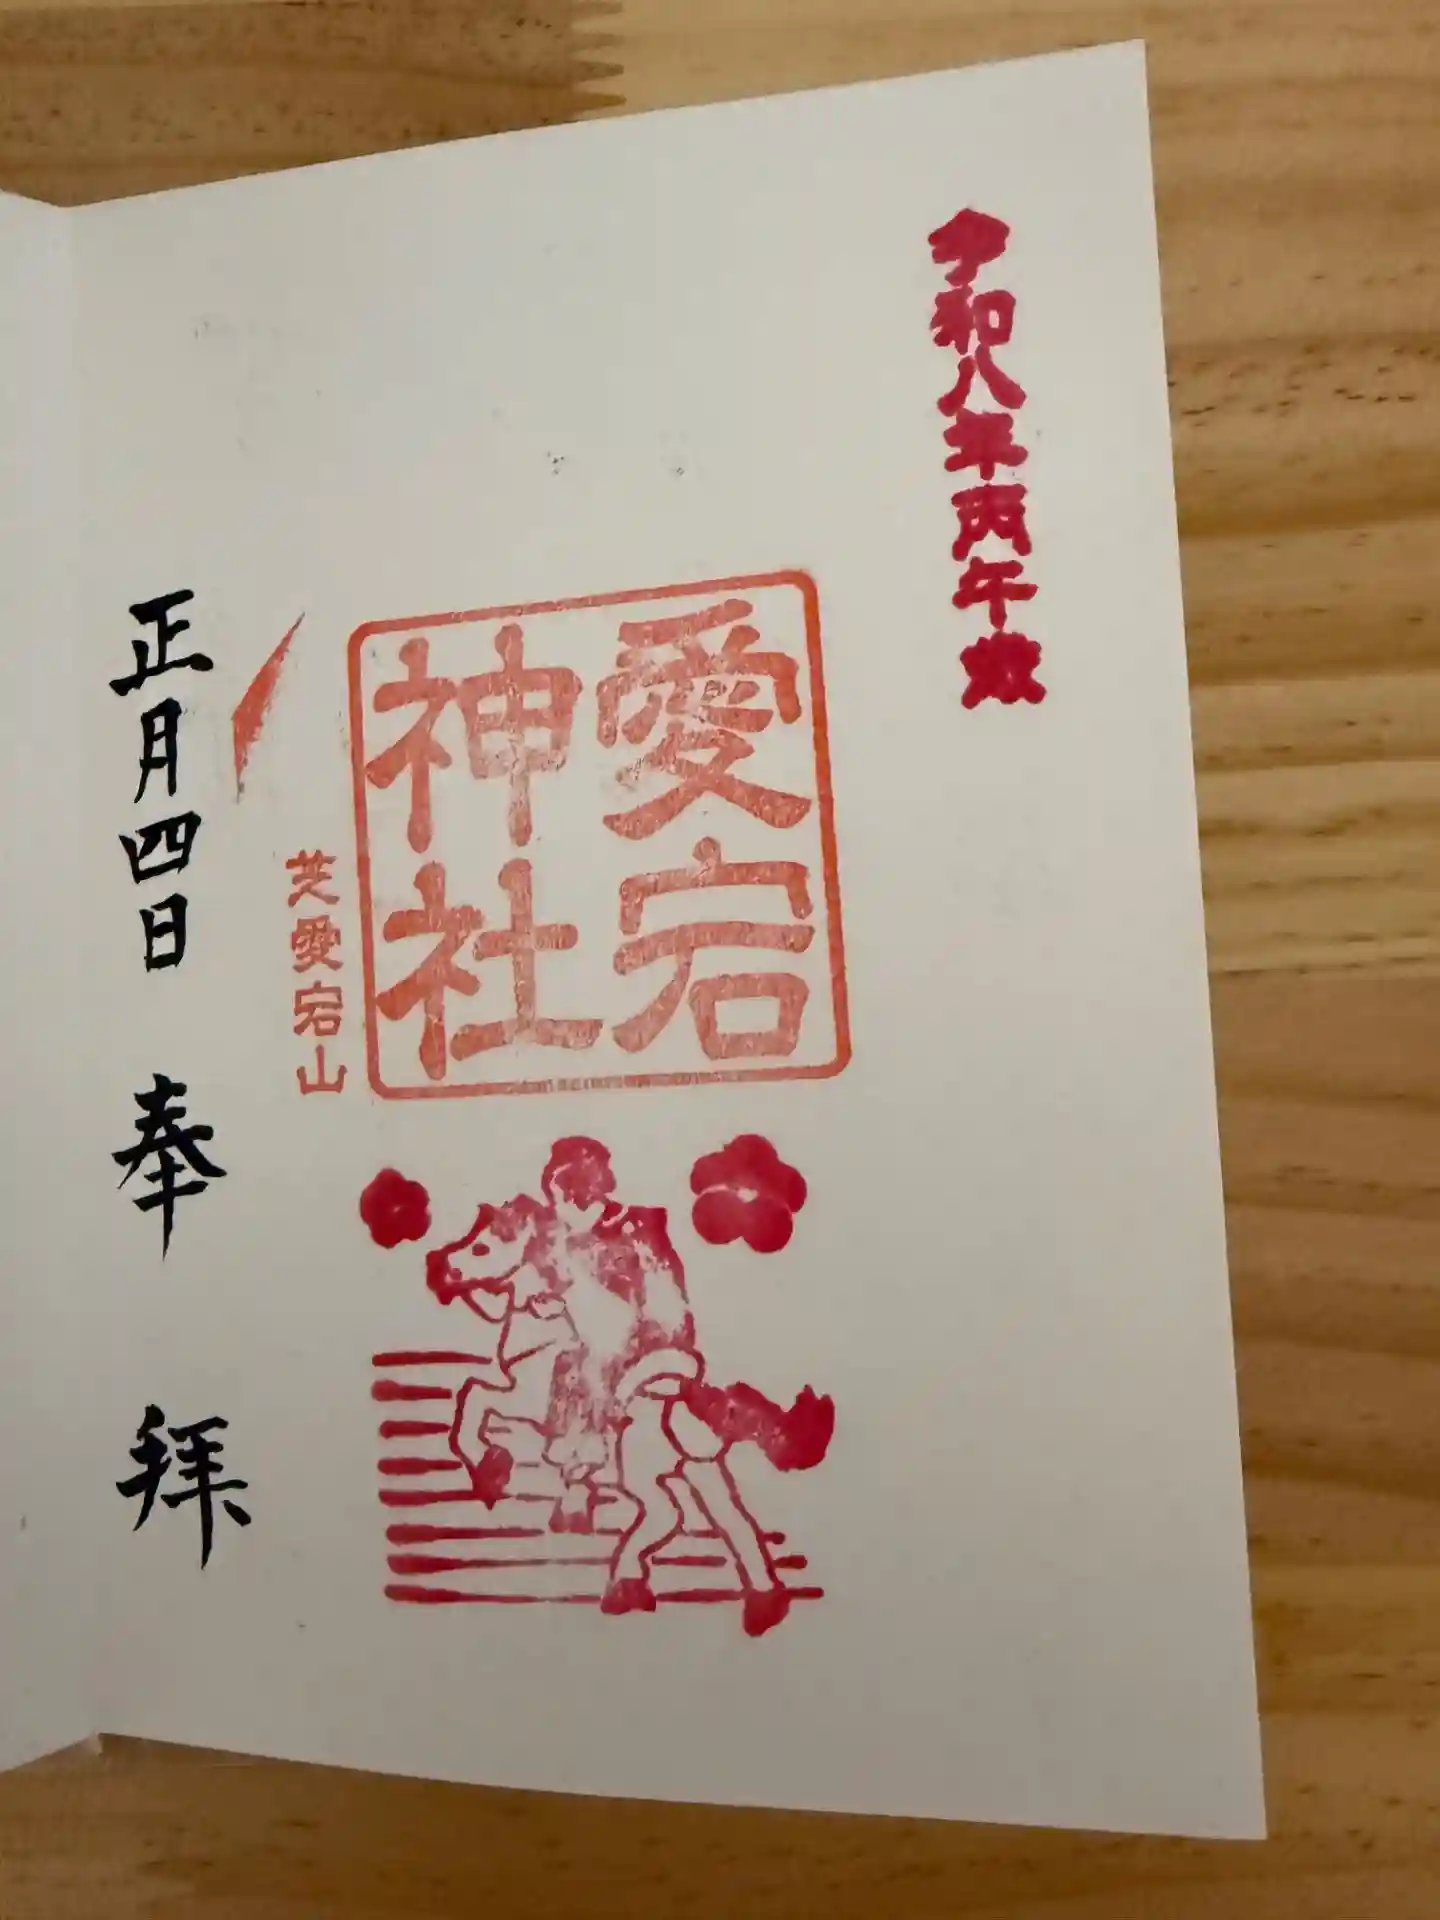 令和八年丙午歳
愛宕
神社
芝愛宕山
正月四日 奉拜